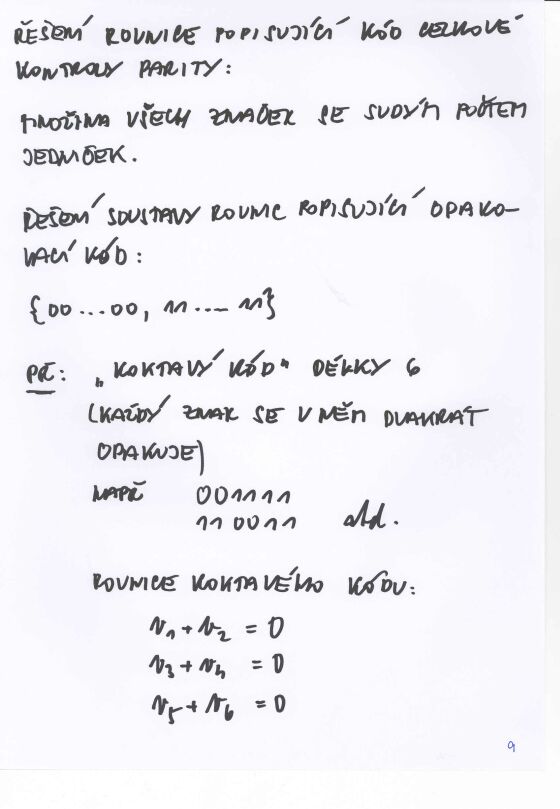 ŘEŠENÍ ROVNICE POPISUJÍCÍ KÓD CELKOVÉ
KONTROLY PARITY:
MNOŽINA VŠECH ZNAČEK SE SUDÝM POČTEM
JEDNIČEK.
ŘEŠENÍ SOUSTAVY ROVNIC POPISUJÍCÍ OPAKO-
VACÍ KÓD:
{00...00, 11....11}
PŘ: „KOKTAVÝ KÓD" DÉLKY 6
(KAŽDÝ ZNAK SE V NĚM DVAKRÁT
OPAKUJE)
NAPŘ 001111
110011 atd.
ROVNICE KOKTAVÉHO KÓDU:
v₁ + v₂ = 0
v₃ + v₄ = 0
v₅ + v₆ = 0
9